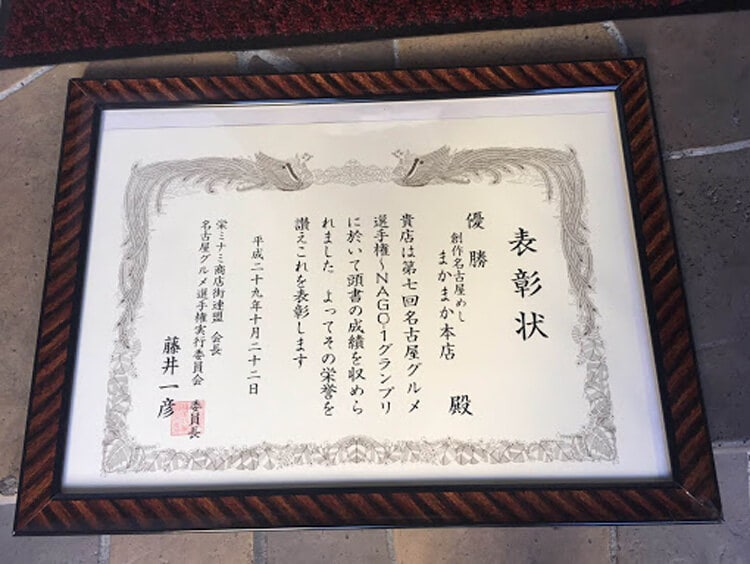 表彰状
優勝
創作名古屋めし
まかまか本店 殿
貴店は第七回名古屋グルメ
選手権～NAGO-1グランプリ
に於いて頭書の成績を収めら
れました よってその栄誉を
讃えこれを表彰します
平成二十九年十月二十二日
栄ミナミ商店街連盟 会長
名古屋グルメ選手権実行委員会 委員長
藤井一彦